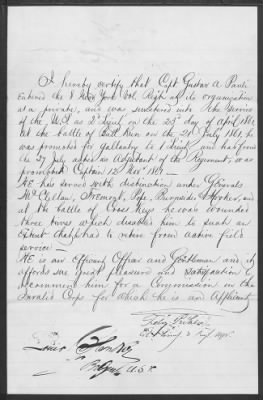 I hereby certify that Capt Gustav A
Entered the 8 New York Vol. Regt at its organization
as a private, and was mustered into the service
of the U.S. as 2d Lieut on the 23d day of April 1861
at the battle of Bull Run on the 21 July 1861, he
was promoted for gallantry to 1 Lieut and has from
the 27 July acted as Adjutant of the Regiment, was
promoted Captain 12 Nov 1861 —
He has served with distinction under Generals
McClellan, Fremont, Pope, Burnside, Hooker, and
at the battle of Cross Keys he was wounded
three times which disabled him to such an
Extent that he had to retire from active field
service —
He is an Efficient Officer and Gentleman and it
affords me great pleasure and satisfaction to
recommend him for a Commission on the
Invalid Corps for which he is an Applicant
Felix